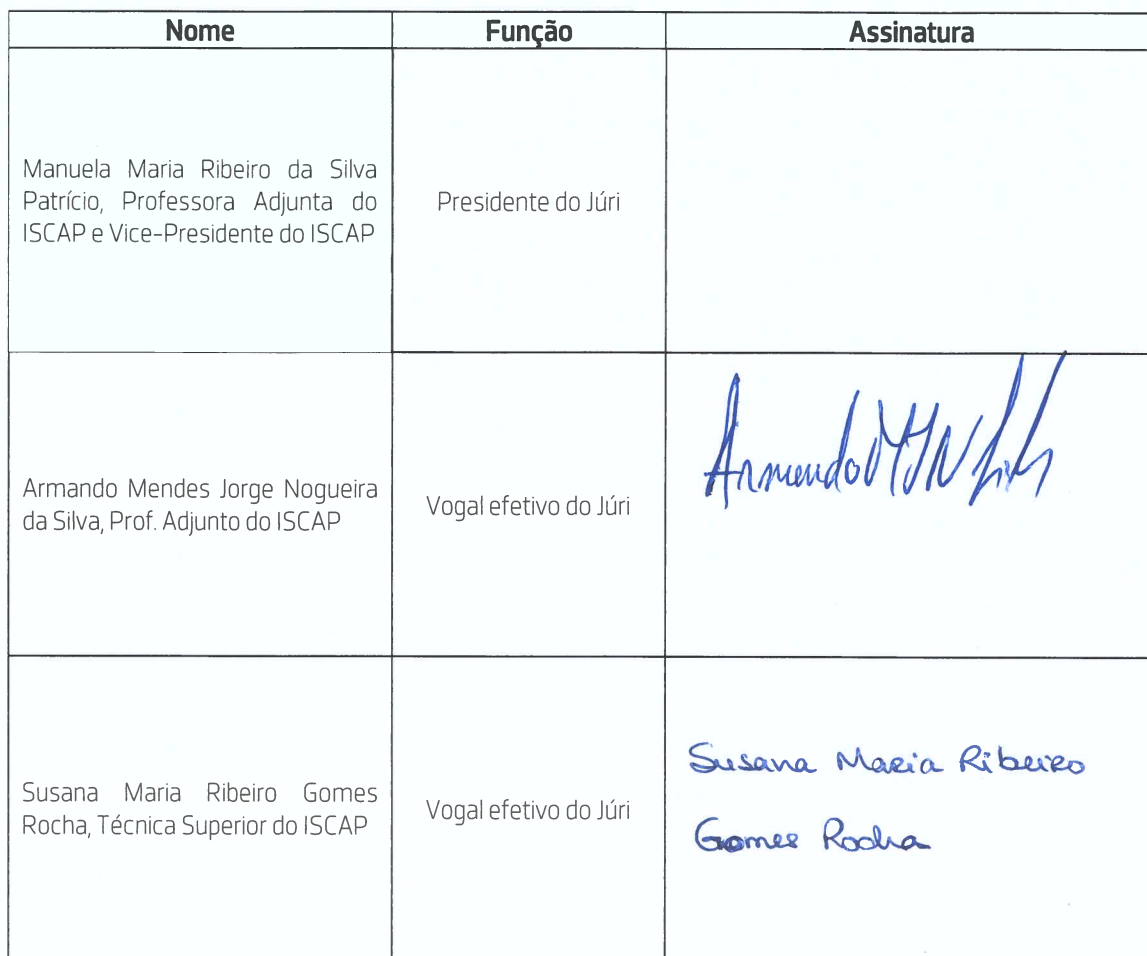 Nome Função Assinatura
Manuela Maria Ribeiro da Silva
Patrício, Professora Adjunta do
ISCAP e Vice-Presidente do ISCAP
Presidente do Júri
Armando Mendes Jorge Nogueira
da Silva, Prof. Adjunto do ISCAP
Vogal efetivo do Júri
Armando MJN Silva
Susana Maria Ribeiro Gomes
Rocha, Técnica Superior do ISCAP
Vogal efetivo do Júri
Susana Maria Ribeiro
Gomes Rocha